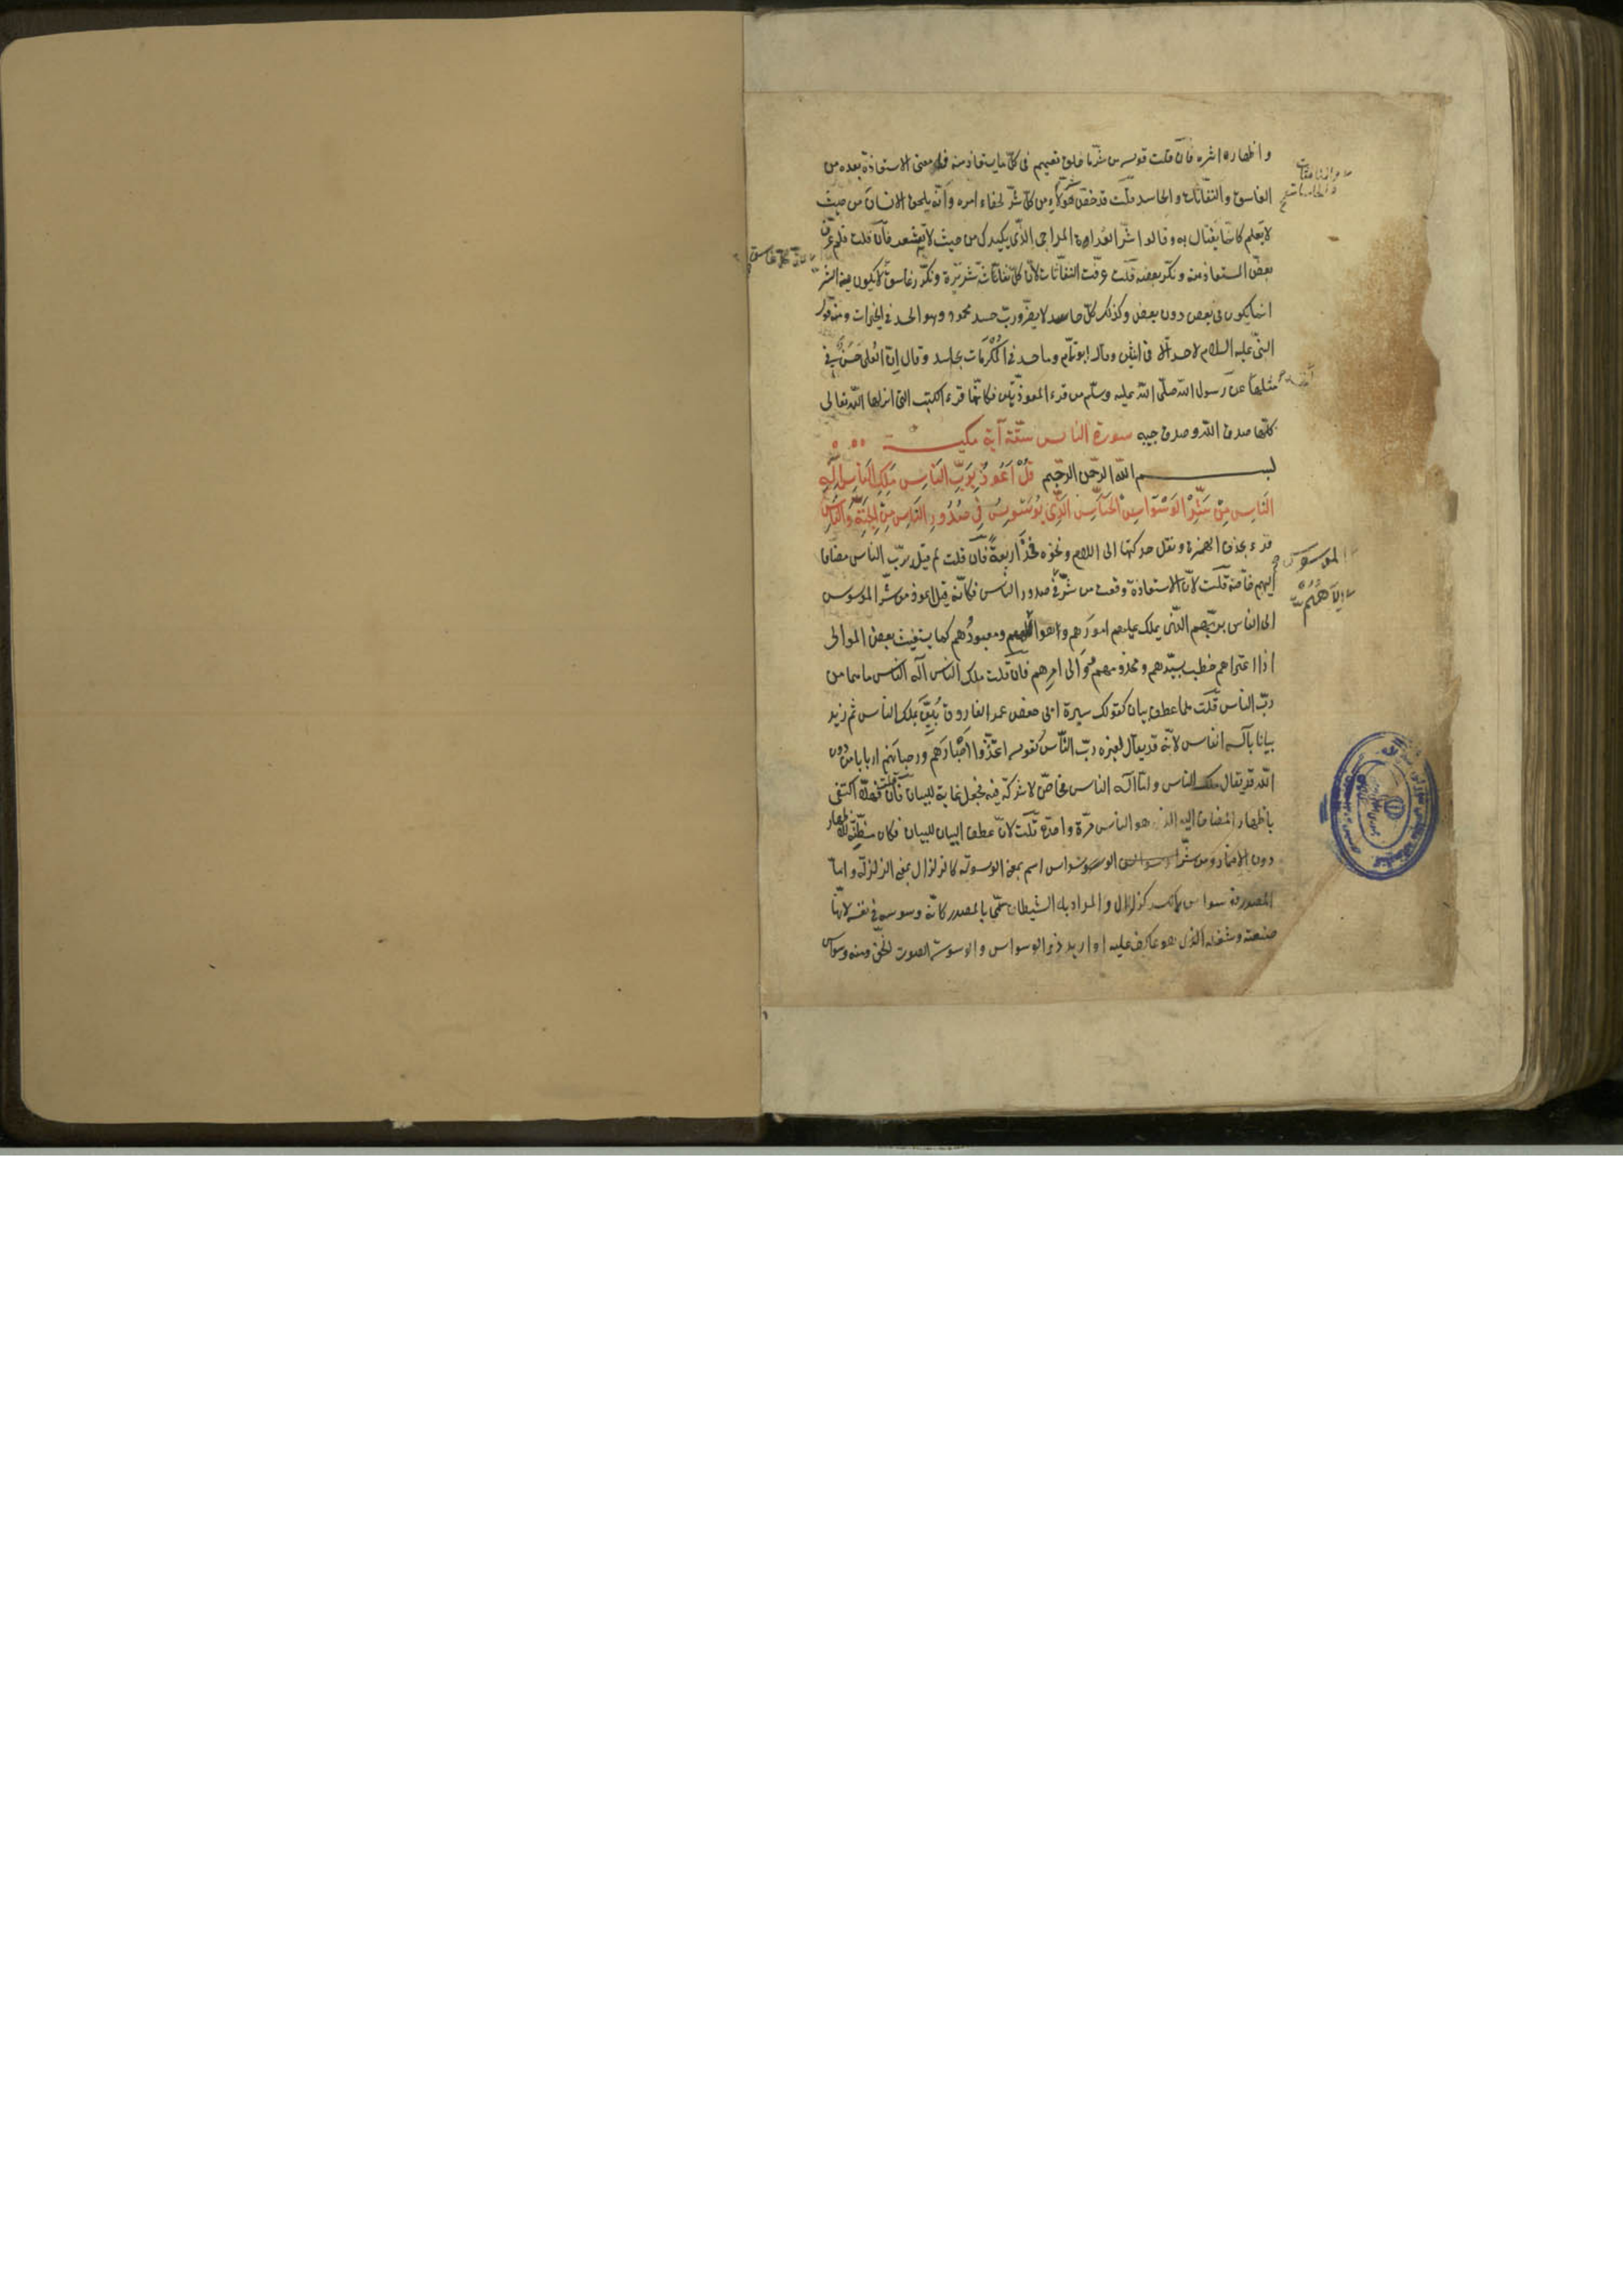 و اظهاره اثره فان قلت قوله من شر ما خلق تعميم فى كل ما يستعاذ منه فما معنى الاستعاذة بعده من
الغاسق والنفاثات والحاسد قلت قد خص شر هؤلاء من كل شر لخفاء امره وانه يلحق الانسان من حيث
لا يعلم كانما يغتال به وقالوا شر العداة المداجى الذى يكيدك من حيث لا تشعر فان قلت فلم عرّف
بعض المستعاذ منه ونكّر بعضه قلت عرّفت النفاثات لان كل نفاثة شريرة ونكّر غاسق لا يكون فيه الشر
انما يكون فى بعض دون بعض وكذلك كل حاسد لا يضر وربّ حسد محمود وهو الحسد فى الخيرات ومنه قول
النبى عليه السلام لا حسد الا فى اثنين وقال ابو تمام وما حاسد فى المكرمات بحاسد وقال ان العلى حسن فى
مثلها عن رسول الله صلى الله عليه وسلم من قرء المعوذتين فكانما قرء الكتب التى انزلها الله تعالى
كلها صدق الله وصدق حبيبه سورة الناس ستة آية مكية
بسم الله الرحمن الرحيم قُلْ اَعُوذُ بِرَبِّ النَّاسِ مَلِكِ النَّاسِ اِلٰهِ
النَّاسِ مِنْ شَرِّ الْوَسْوَاسِ الْخَنَّاسِ الَّذِى يُوَسْوِسُ فِى صُدُورِ النَّاسِ مِنَ الْجِنَّةِ وَالنَّاسِ
قرء بحذف الهمزة ونقل حركتها الى اللام ونحوه فخذ اربعة فان قلت لم قيل برب الناس مضافا
اليهم خاصة قلت لان الاستعاذة وقعت من شر فى صدور الناس فكانه قيل اعوذ من شر الموسوس
الى الناس بربهم الذى يملك عليهم امورهم وهو الههم ومعبودهم كما يستغيث بعض الموالى
اذا اعتراهم خطب بسيدهم ومخدومهم ووالى امرهم فان قلت ملك الناس اله الناس ما هما من
رب الناس قلت هما عطف بيان كقولك سيرة ابى حفص عمر الفاروق بُيّن بملك الناس ثم زيد
بيانا باله الناس لانه قد يقال لغيره رب الناس كقوله اتخذوا احبارهم ورهبانهم اربابا من دون
الله قد يقال ملك الناس واما اله الناس فخاص لا شركة فيه فجعل غاية للبيان فان قلت فهلا اكتفى
باظهار المضاف اليه الذى هو الناس مرة واحدة قلت لان عطف البيان للبيان فكان مظنة للاظهار
دون الاضمار من شر الوسواس اسم بمعنى الوسوسة كالزلزال بمعنى الزلزلة واما
المصدر فوسواس بالكسر كزلزال والمراد به الشيطان سمى بالمصدر كانه وسوسة فى نفسه لانها
صنعته وشغله الذى هو عاكف عليه او اريد ذو الوسواس والوسوسة الصوت الخفى ومنه وسواس
الموسوس
الههم